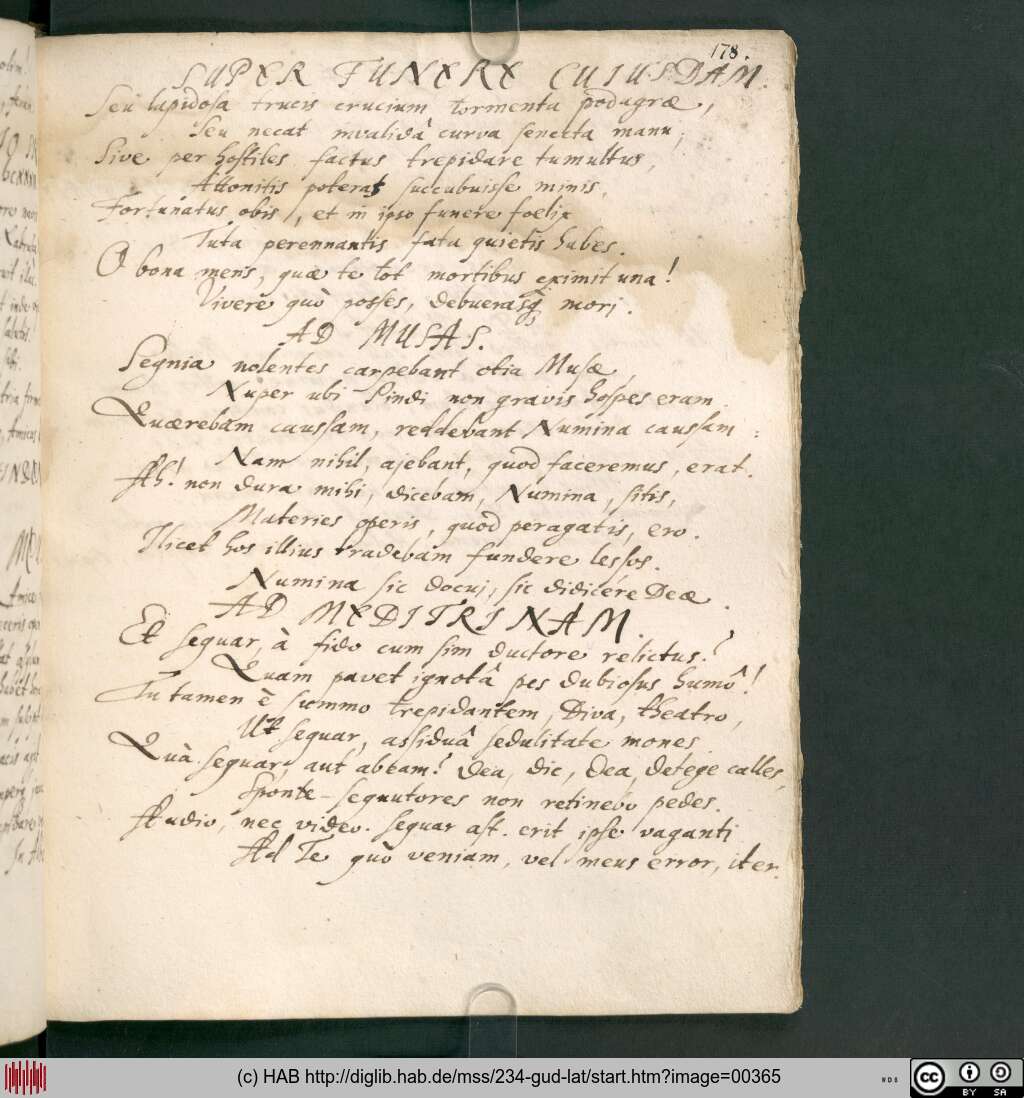 178.
SUPER FUNERE CUIUSDAM.
Seu lapidosa trucis crucium tormenta podagræ,
Seu necat invalidâ curva senecta manu;
Sive per hostiles factus trepidare tumultus,
Attonitis poterat succubuisse minis,
Fortunatus obis, et in ipso funere foelix
Tuta perennantis fata quietis habes.
O bona mens, quæ te tot mortibus eximit una!
Vivere quò posses, debuerasq; mori.
AD MUSAS.
Segnia nolentes carpebant otia Musæ,
Nuper ubi Pindi non gravis hospes eram.
Quærebam caussam, reddebant Numina caussam:
Nam nihil, ajebant, quod faceremus, erat.
Ah! non dura mihi, dicebam, Numina, sitis,
Materies operis, quod peragatis, ero.
Ilicet hos illius tradebam fundere lessos.
Numina sic docui, sic didicére Deæ.
AD MEDITRINAM.
Et sequar, à fido cum sim ductore relictus?
Quam pavet ignotâ pes dubiosus humô!
Tu tamen è summo trepidantem, Diva, theatro,
Ut sequar, assiduâ sedulitate mones.
Quà sequar, aut abbam? Dea, dic, Dea, detege calles,
Sponte sequutores non retinebo pedes.
Audio, nec video. sequar ast. erit ipse vaganti
Ad Te quò veniam, vel meus error, iter.
(c) HAB http://diglib.hab.de/mss/234-gud-lat/start.htm?image=00365
cc BY SA